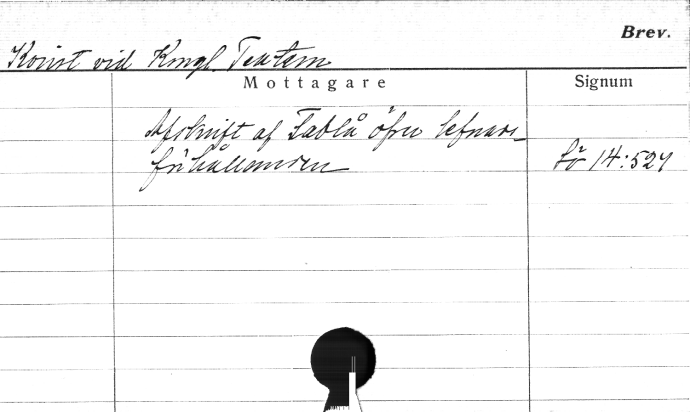 Brev.
vid Kongl. Teatern
Mottagare
Signum
Afskrift af Tablå öfver lefnads-
förhållanden
Lö 14:527